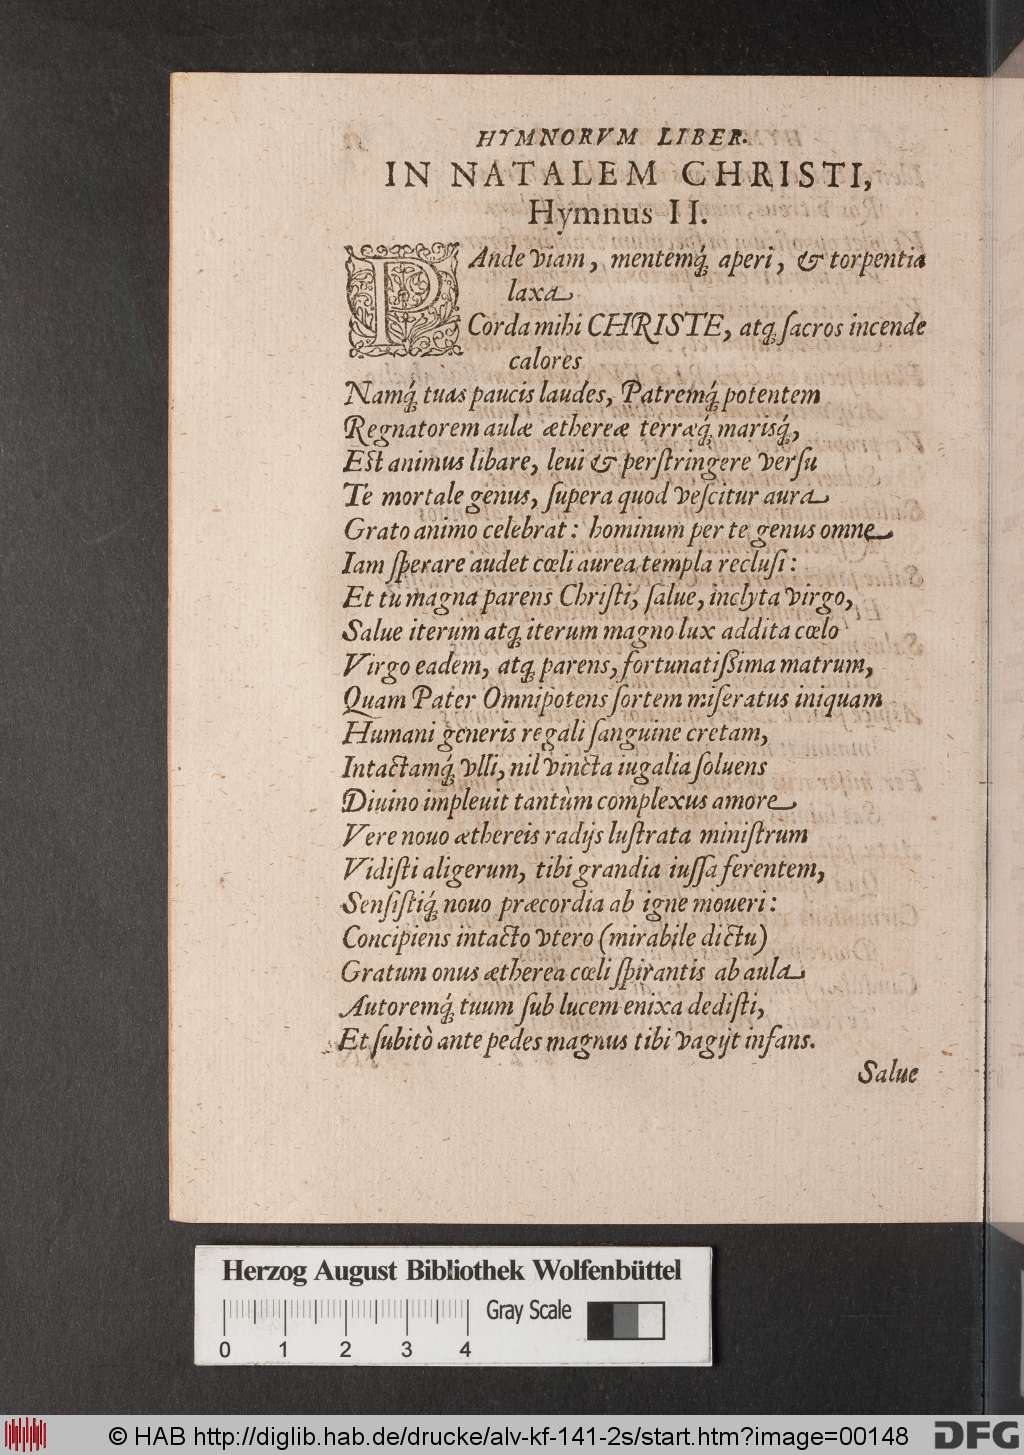 HYMNORVM LIBER.
IN NATALEM CHRISTI,
Hymnus II.
PAnde viam, mentemq́; aperi, & torpentia
laxa
Corda mihi CHRISTE, atq; sacros incende
calores
Namq́; tuas paucis laudes, Patremq́; potentem
Regnatorem aulæ æthereæ terræq́; marisq́;,
Est animus libare, leui & perstringere versu
Te mortale genus, supera quod vescitur aura
Grato animo celebrat: hominum per te genus omne
Iam sperare audet cœli aurea templa reclusi:
Et tu magna parens Christi, salue, inclyta virgo,
Salue iterum atq; iterum magno lux addita cœlo
Virgo eadem, atq; parens, fortunatißima matrum,
Quam Pater Omnipotens sortem miseratus iniquam
Humani generis regali sanguine cretam,
Intactamq́; vlli, nil vincta iugalia soluens
Diuino impleuit tantùm complexus amore
Vere nouo æthereis radijs lustrata ministrum
Vidisti aligerum, tibi grandia iussa ferentem,
Sensistiq́; nouo præcordia ab igne moueri:
Concipiens intacto vtero (mirabile dictu)
Gratum onus ætherea cœli spirantis ab aula
Autoremq́; tuum sub lucem enixa dedisti,
Et subitò ante pedes magnus tibi vagijt infans.
Salue
Herzog August Bibliothek Wolfenbüttel
Gray Scale
0 1 2 3 4
© HAB http://diglib.hab.de/drucke/alv-kf-141-2s/start.htm?image=00148
DFG